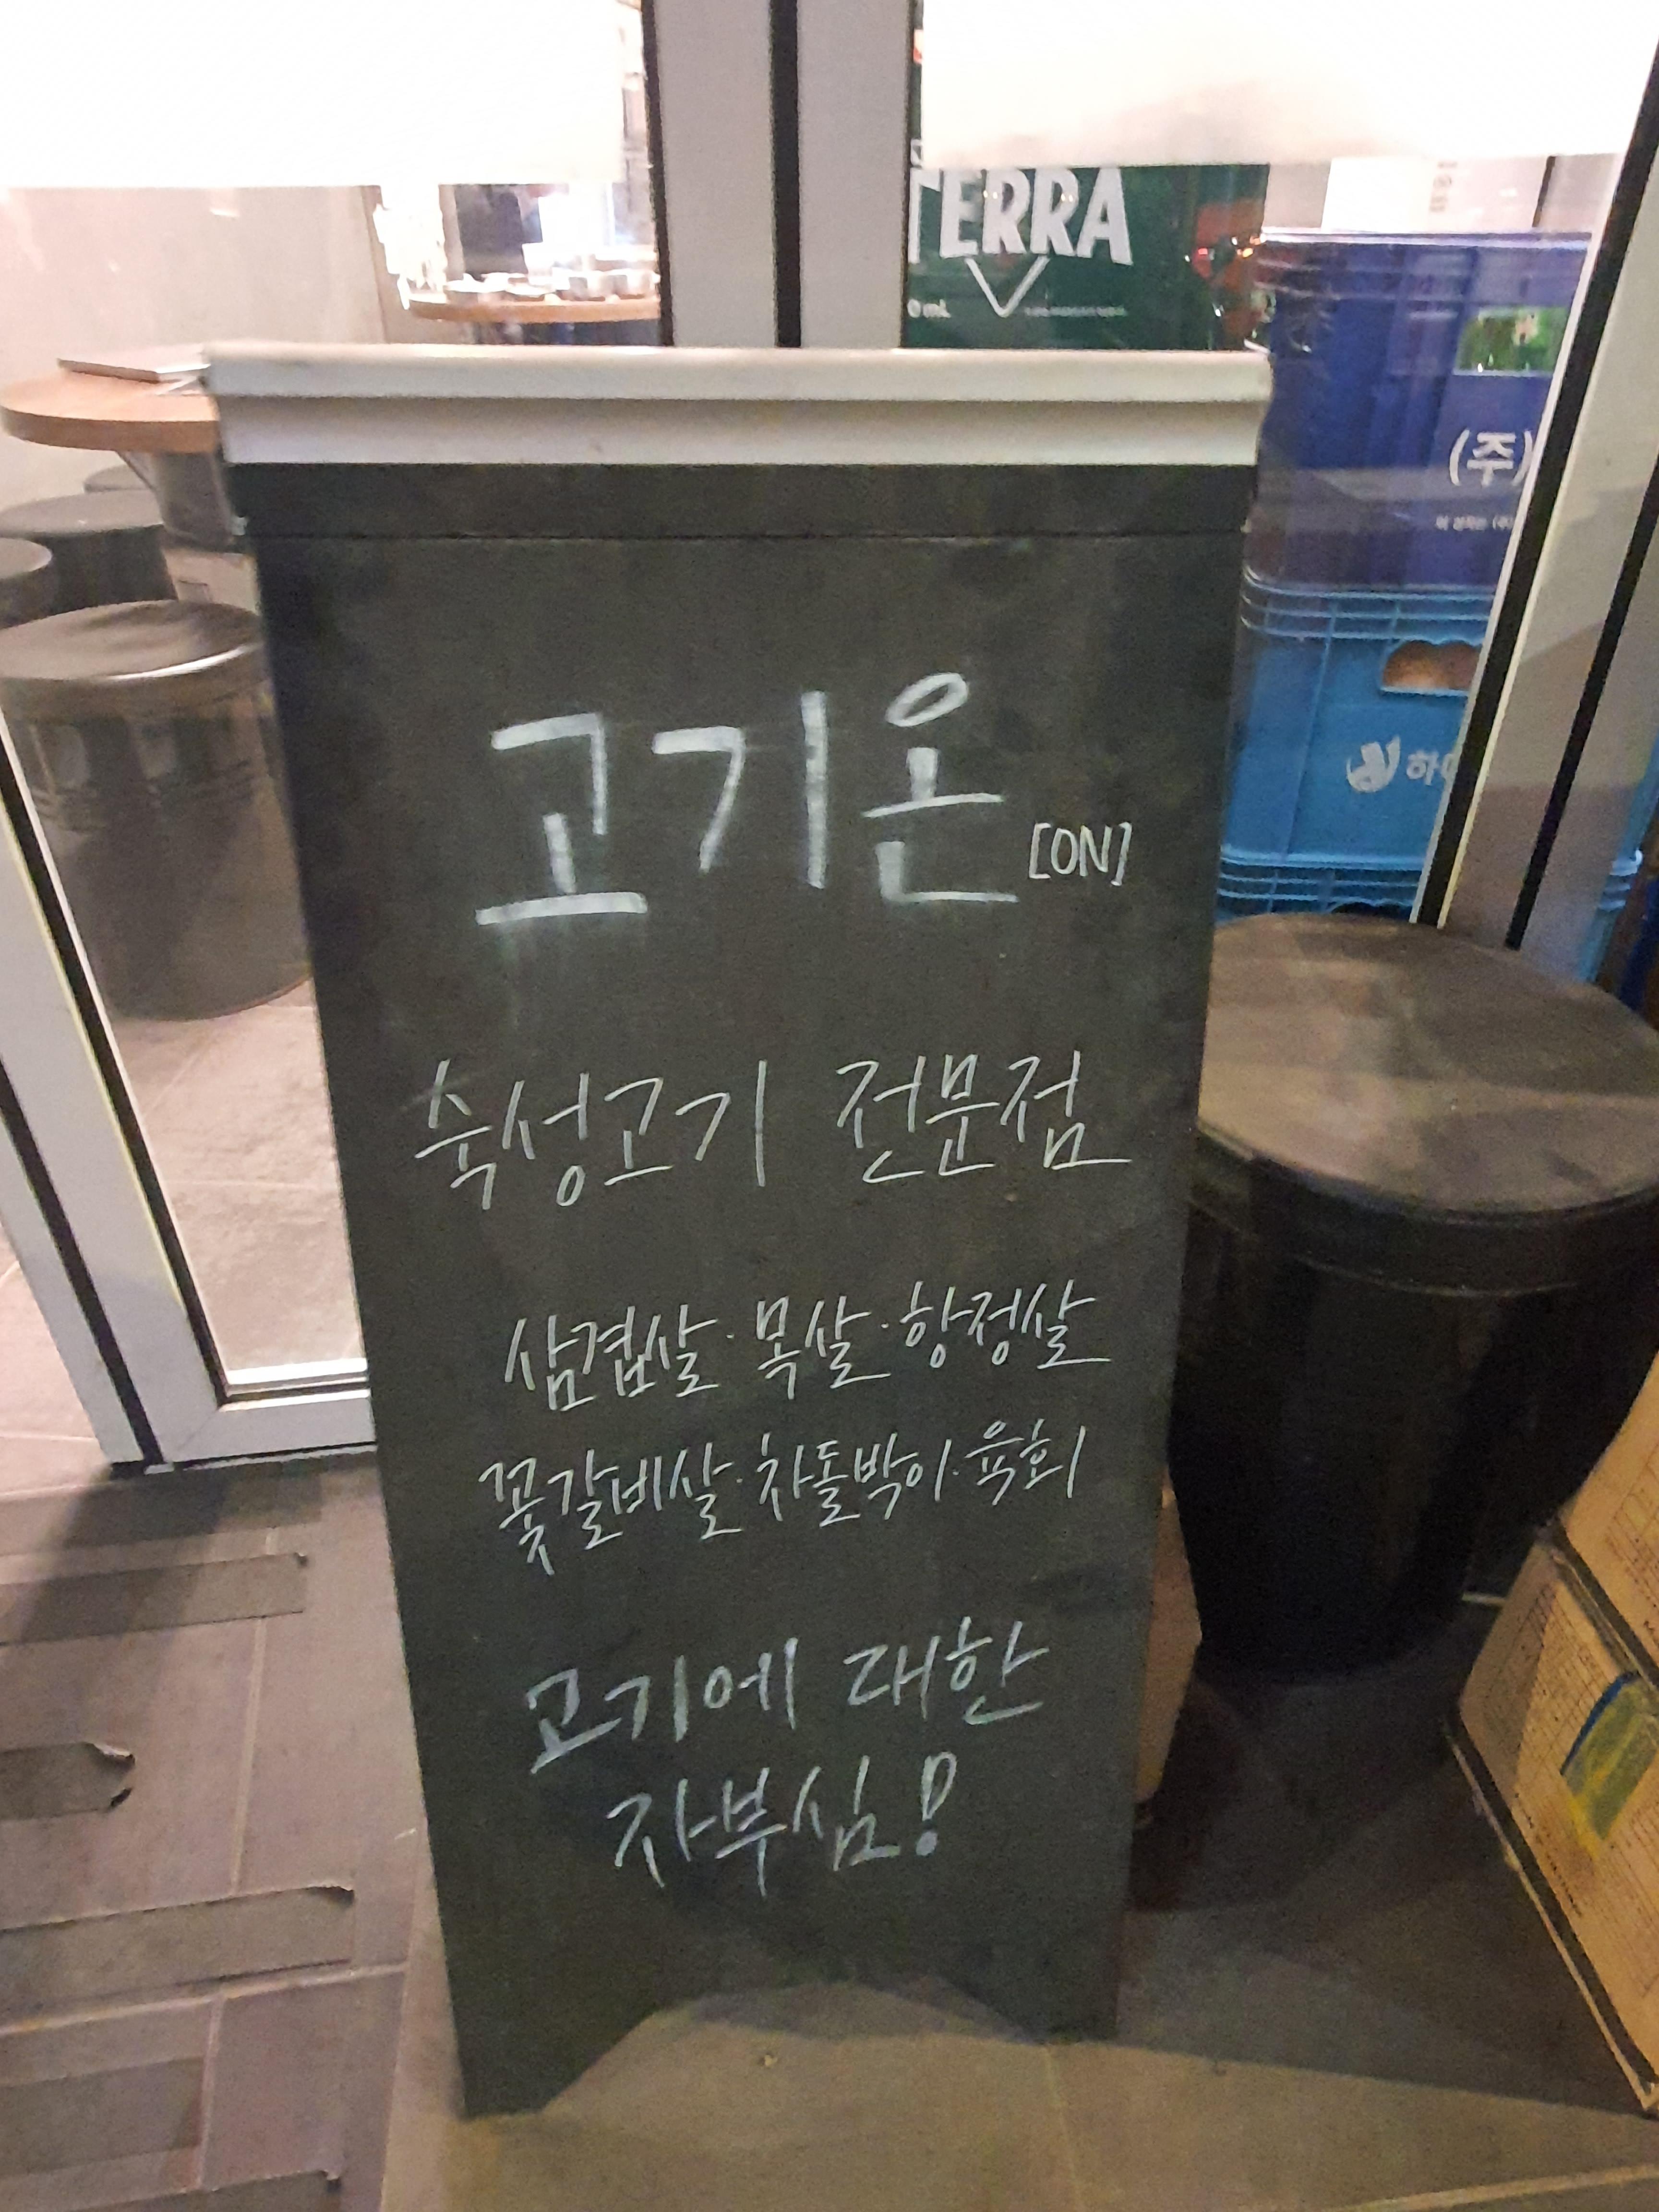 TERRA
(주)
고기온 [ON]
숙성고기 전문점
삼겹살·목살·항정살
꽃갈비살·차돌박이·육회
고기에 대한
자부심!